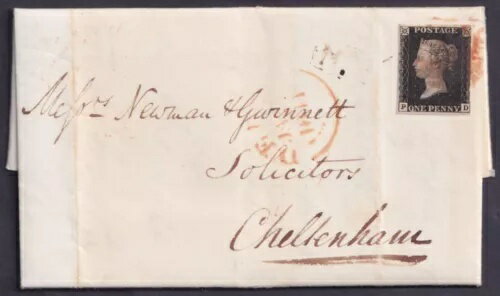 POSTAGE
P ONE PENNY D
Messrs Newman & Gwinnett
Solicitors
Cheltenham